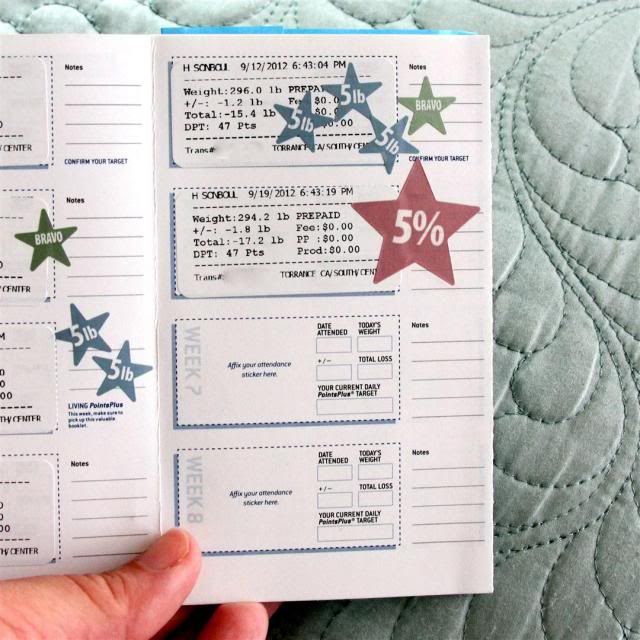 Notes
CENTER
CONFIRM YOUR TARGET
BRAVO
5lb
5lb
00
LIVING PointsPlus
This week, make sure to
pick up this valuable
booklet.
CENTER
Notes
00
CENTER
H SONBOUL 9/12/2012 6:43:04 PM
Weight:296.0 lb PREPAI
+/-: -1.2 lb Fe $0.0
Total:-15.4 lb $0.
DPT: 47 Pts $0.00
Trans#:
TORRANCE CA/SOUTH/CENTER
5lb
5lb
5lb
Notes
BRAVO
CONFIRM YOUR TARGET
H SONBOUL 9/19/2012 6:43:19 PM
Weight:294.2 lb PREPAID
+/-: -1.8 lb Fee:$0.00
Total:-17.2 lb PP :$0.00
DPT: 47 Pts Prod:$0.00
Trans#:
TORRANCE CA/SOUTH/CENT
5%
WEEK 7
Affix your attendance
sticker here.
DATE
ATTENDED
TODAY'S
WEIGHT
+/–
TOTAL LOSS
YOUR CURRENT DAILY
PointsPlus® TARGET
Notes
WEEK 8
Affix your attendance
sticker here.
DATE
ATTENDED
TODAY'S
WEIGHT
+/–
TOTAL LOSS
YOUR CURRENT DAILY
PointsPlus® TARGET
Notes